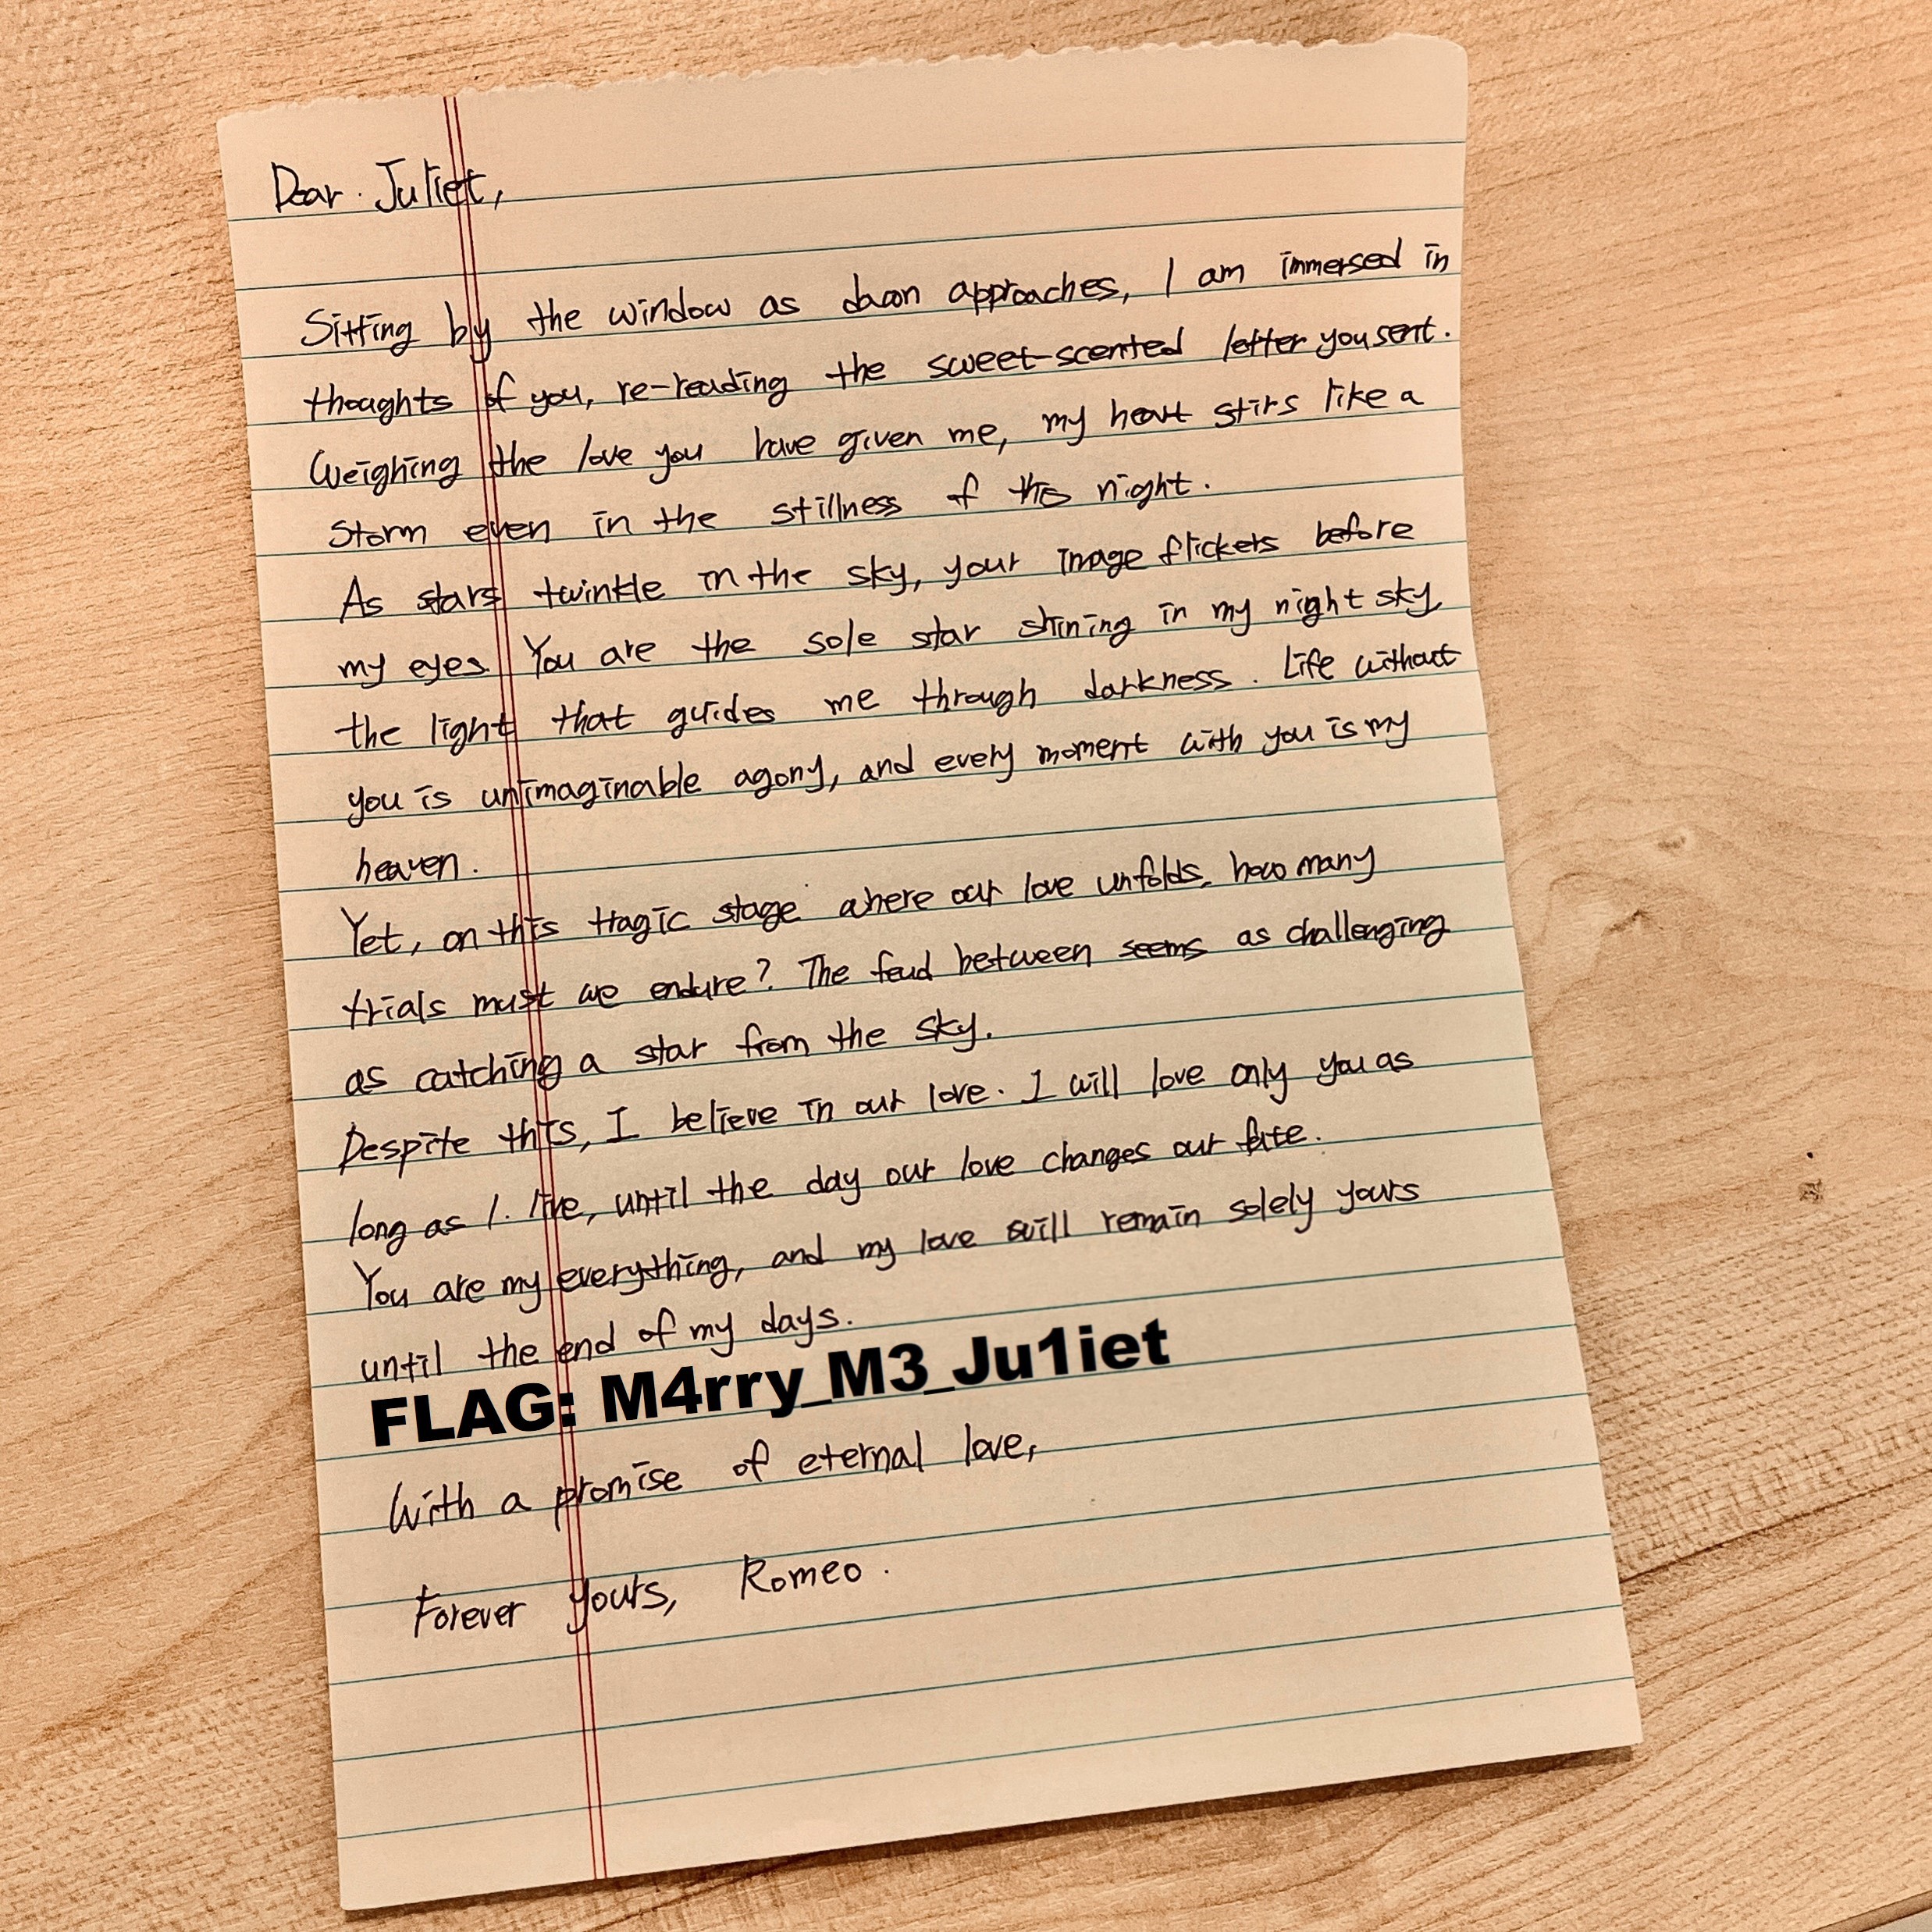 Dear. Juliet,
Sitting by the window as dawn approaches, I am immersed in
thoughts of you, re-reading the sweet-scented letter you sent.
Weighing the love you have given me, my heart stirs like a
storm even in the stillness of this night.
As stars twinkle in the sky, your image flickers before
my eyes. You are the sole star shining in my night sky,
the light that guides me through darkness. Life without
you is unimaginable agony, and every moment with you is my
heaven.
Yet, on this tragic stage where our love unfolds, how many
trials must we endure? The feud between seems as challenging
as catching a star from the sky.
Despite this, I believe in our love. I will love only you as
long as I. live, until the day our love changes our fate.
You are my everything, and my love will remain solely yours
until the end of my days.
FLAG: M4rry_M3_Ju1iet
With a promise of eternal love,
Forever yours, Romeo.